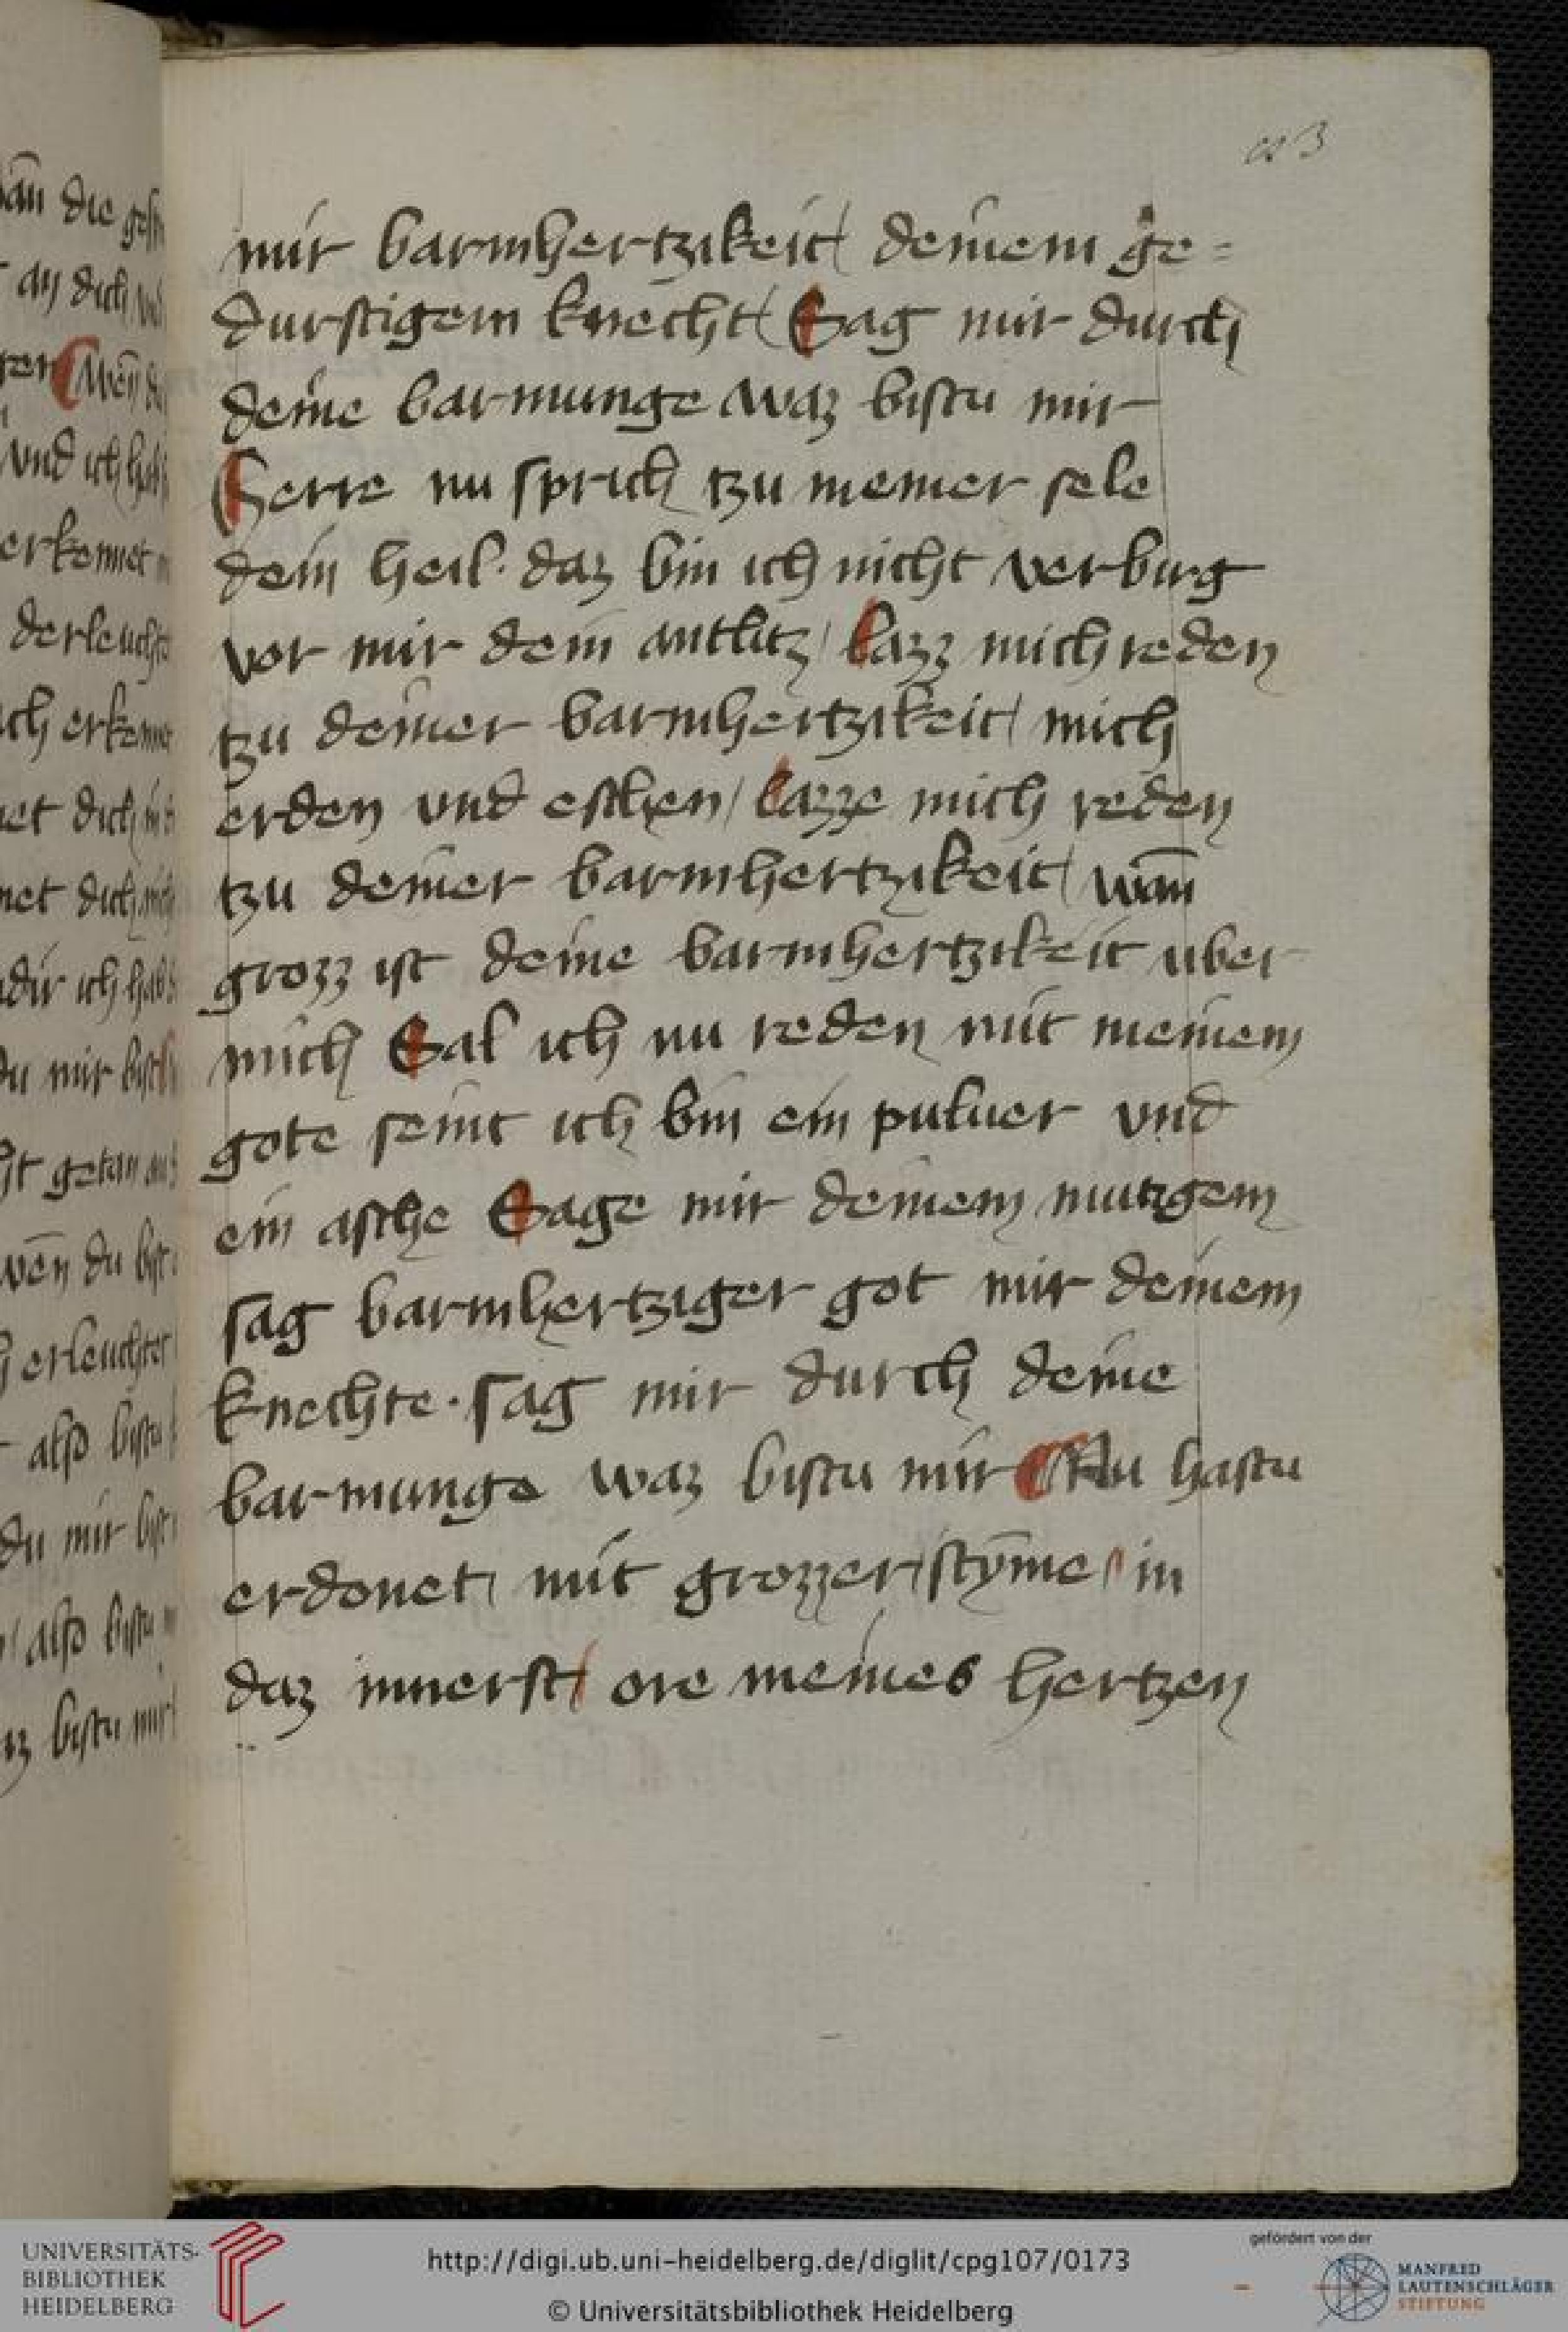 mir barmhertzikeit/ deinem ge=
durstigem knecht/ Sag mir durch
deine barmunge waz bistu mir
Herre nu sprich tzu meiner sele
dein heil· daz bin ich nicht verbirg
vor mir dein antlitz/ lazz mich reden
tzu deiner barmhertzikeit/ mich
erden vnd eschen/ lazze mich reden
tzu deiner barmhertzikeit/ wan̄
grozz ist deine barmhertzikeit vber
mich Sal ich nu reden mit meinem
gote seint ich bin ein puluer vnd
ein asche Sage mir deinem mutigem
sag barmhertziger got mir deinem
knechte· sag mir durch deine
barmunge waz bistu mir Nu hastu
erdonet mit grozzer/ stȳme/ in
daz innerst/ ore meines hertzen
UNIVERSITÄTS-
BIBLIOTHEK
HEIDELBERG
http://digi.ub.uni-heidelberg.de/diglit/cpg107/0173
© Universitätsbibliothek Heidelberg
gefördert von der
MANFRED
LAUTENSCHLÄGER
STIFTUNG